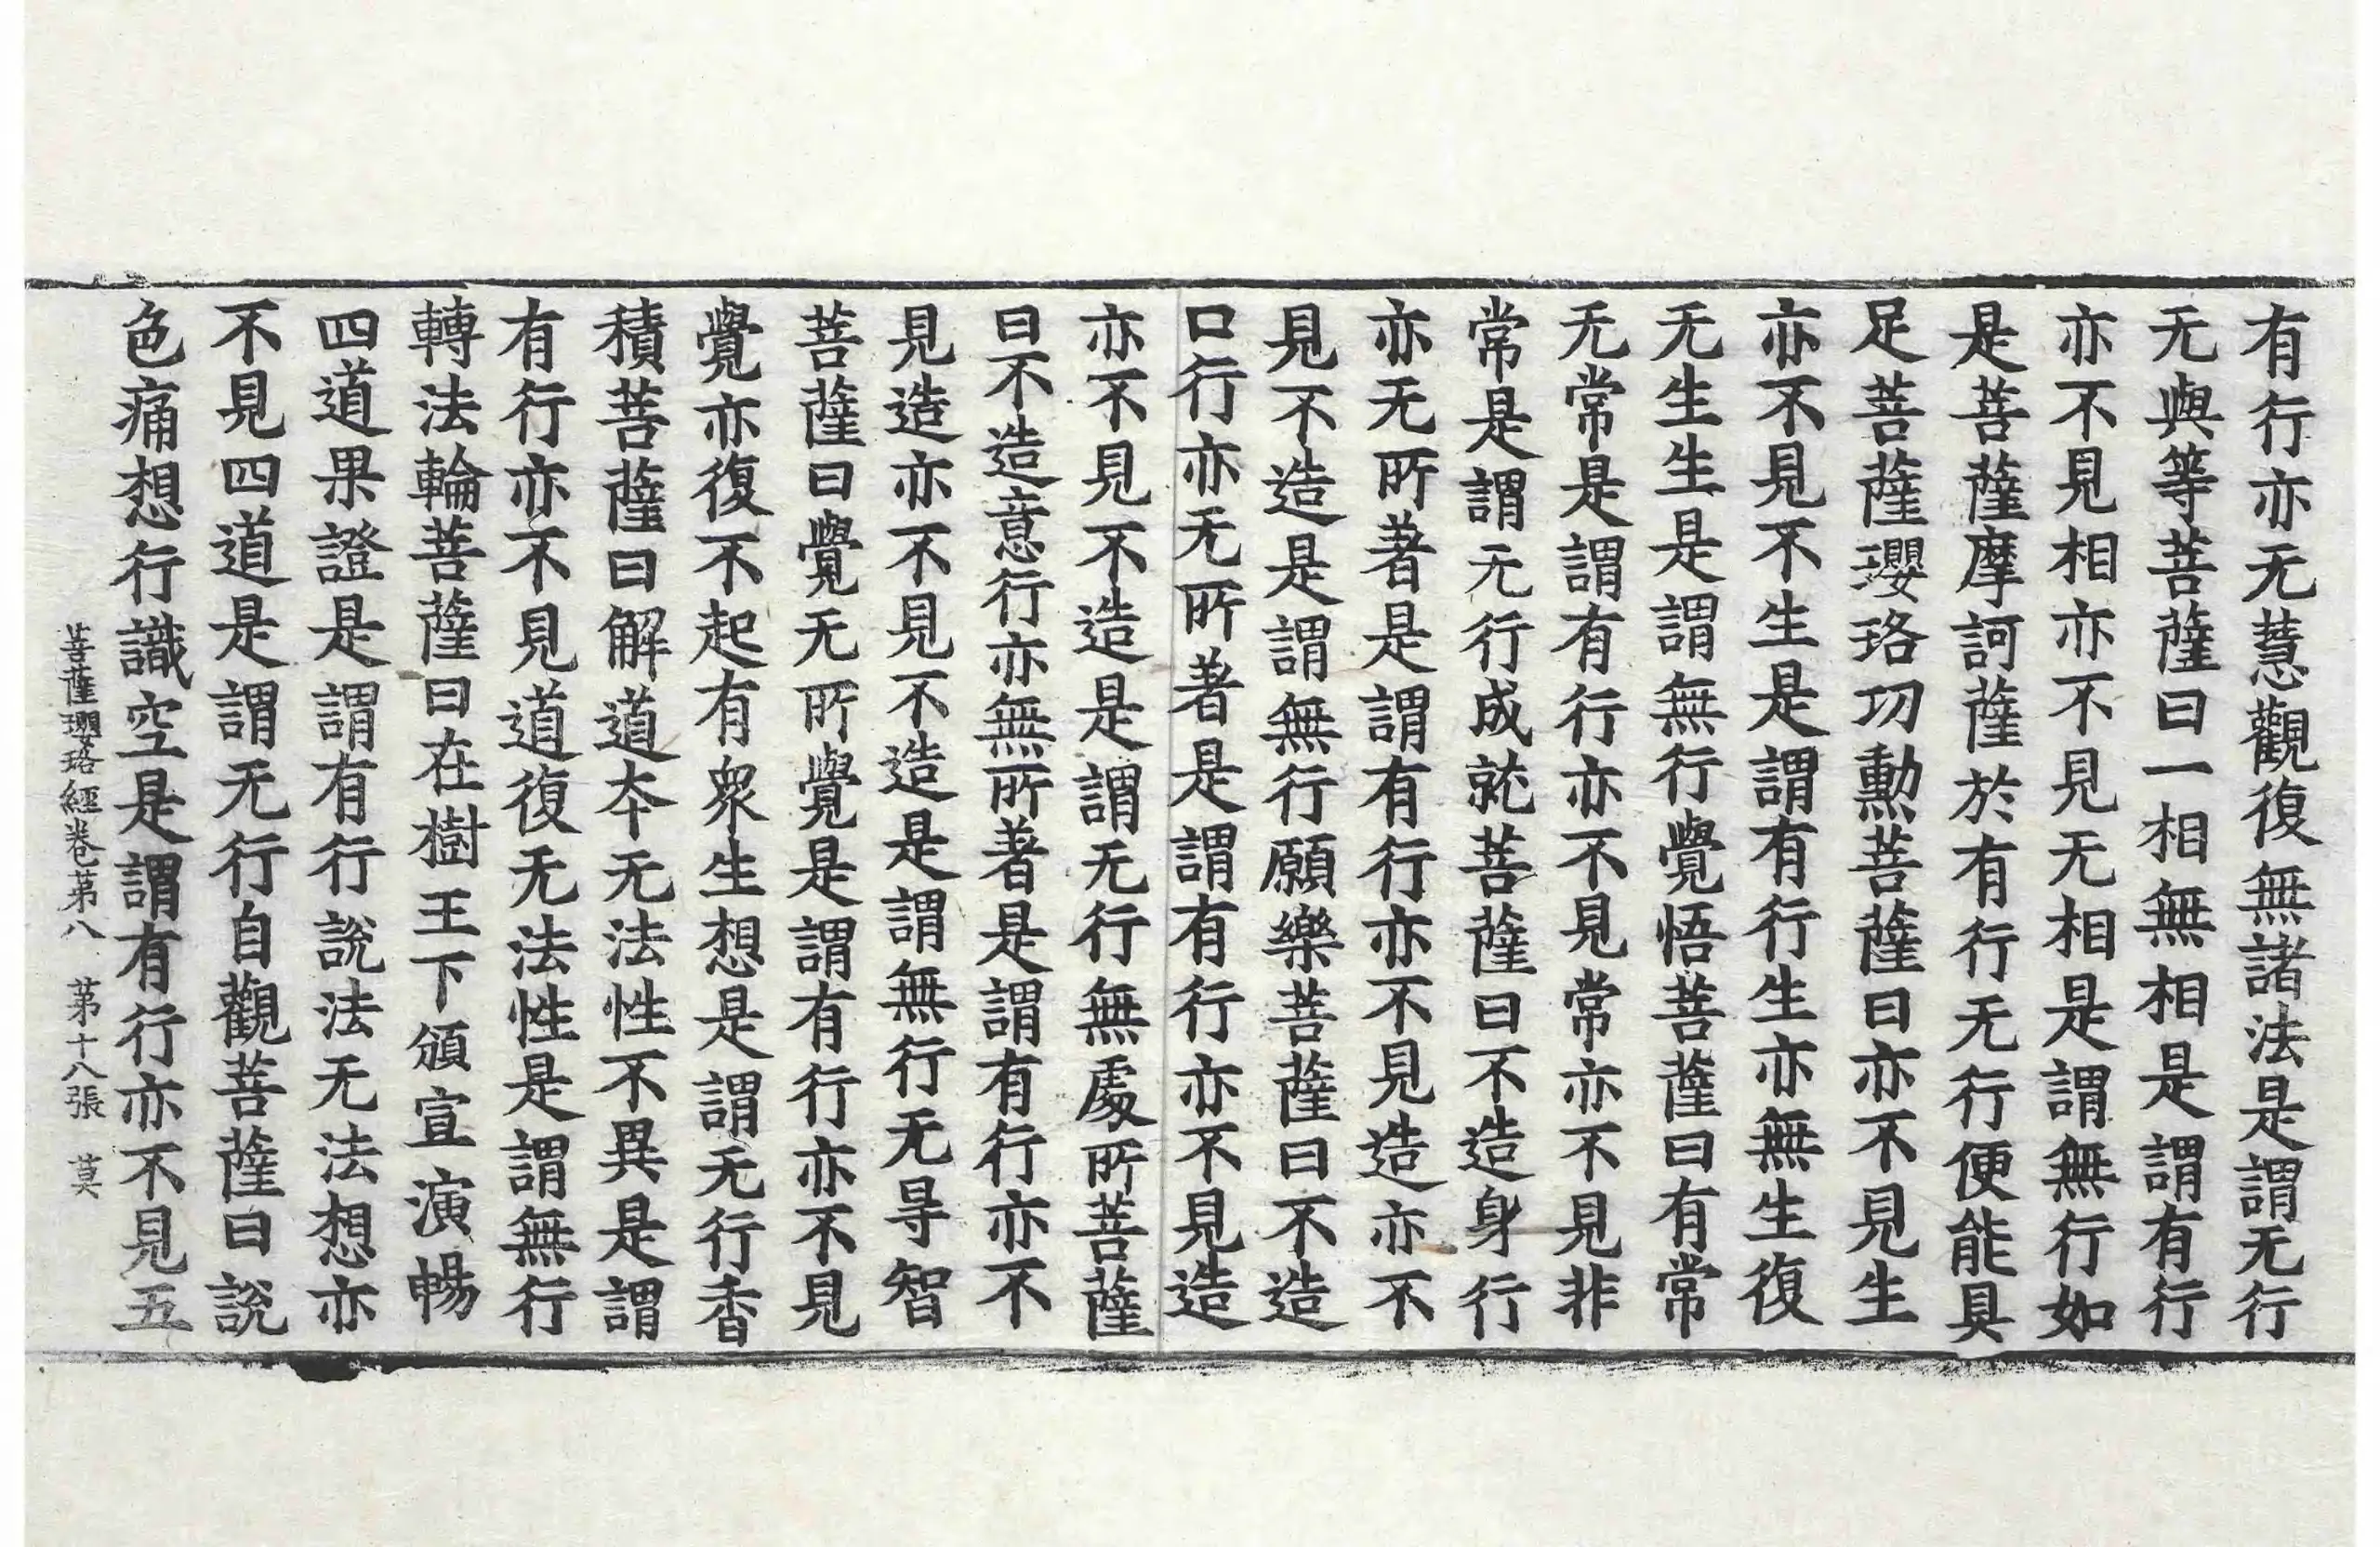 有行亦无慧觀復無諸法是謂无行
无與等菩薩曰一相無相是謂有行
亦不見相亦不見无相是謂無行如
是菩薩摩訶薩於有行无行便能具
足菩薩瓔珞功勳菩薩曰亦不見生
亦不見不生是謂有行生亦無生復
无生生是謂無行覺悟菩薩曰有常
无常是謂有行亦不見常亦不見非
常是謂无行成就菩薩曰不造身行
亦无所著是謂有行亦不見造亦不
見不造是謂無行願樂菩薩曰不造
口行亦无所著是謂有行亦不見造
亦不見不造是謂无行無處所菩薩
曰不造意行亦無所著是謂有行亦不
見造亦不見不造是謂無行无㝵智
菩薩曰覺无所覺是謂有行亦不見
覺亦復不起有衆生想是謂无行香
積菩薩曰解道夲无法性不異是謂
有行亦不見道復无法性是謂無行
轉法輪菩薩曰在樹王下頒宣演暢
四道果證是謂有行說法无法想亦
不見四道是謂无行自觀菩薩曰說
色痛想行識空是謂有行亦不見五
菩薩瓔珞經卷第八 第十八張 莫